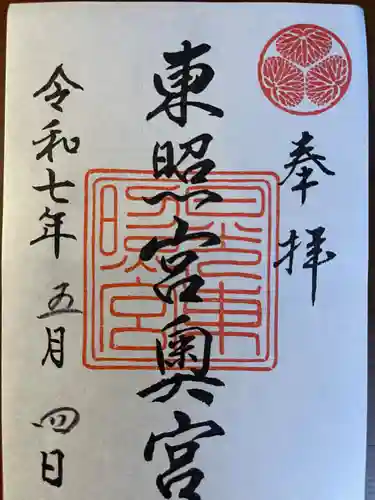 奉拝
東照宮奥宮
令和七年五月四日